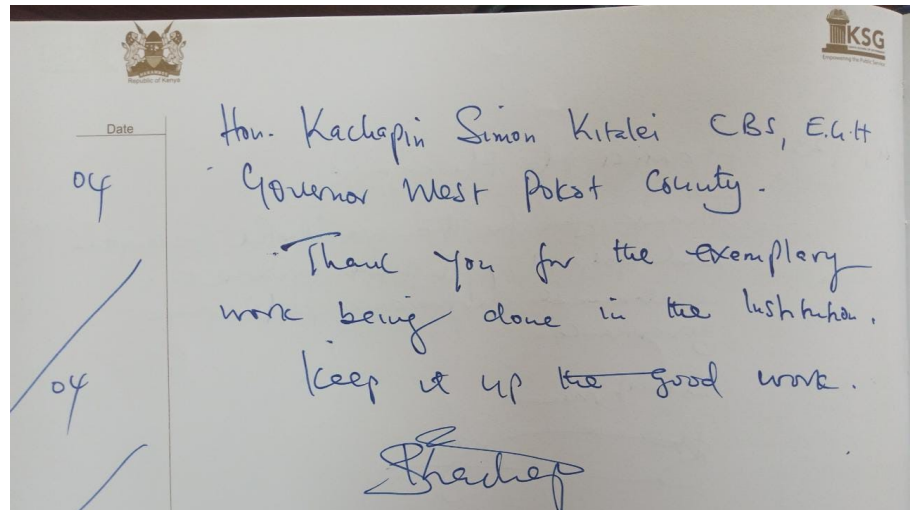 Republic of Kenya
KSG
Empowering the Public Service
Date
Hon. Kachapin Simon Kitalei CBS, E.G.H
04
Governor West Pokot County.
Thank you for the exemplary
work being done in the Institution.
04
Keep it up the good work.